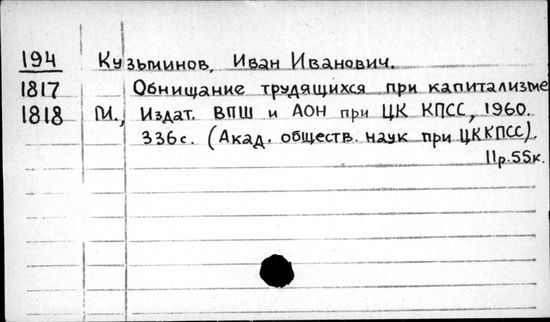 194 Кузьминов, Иван Иванович.
1817 Обнищание трудящихся при капитализме
1818 М., Издат. ВПШ и АОН при ЦК КПСС, 1960.
336с. (Акад. обществ. наук при ЦККПСС).
11р.55к.